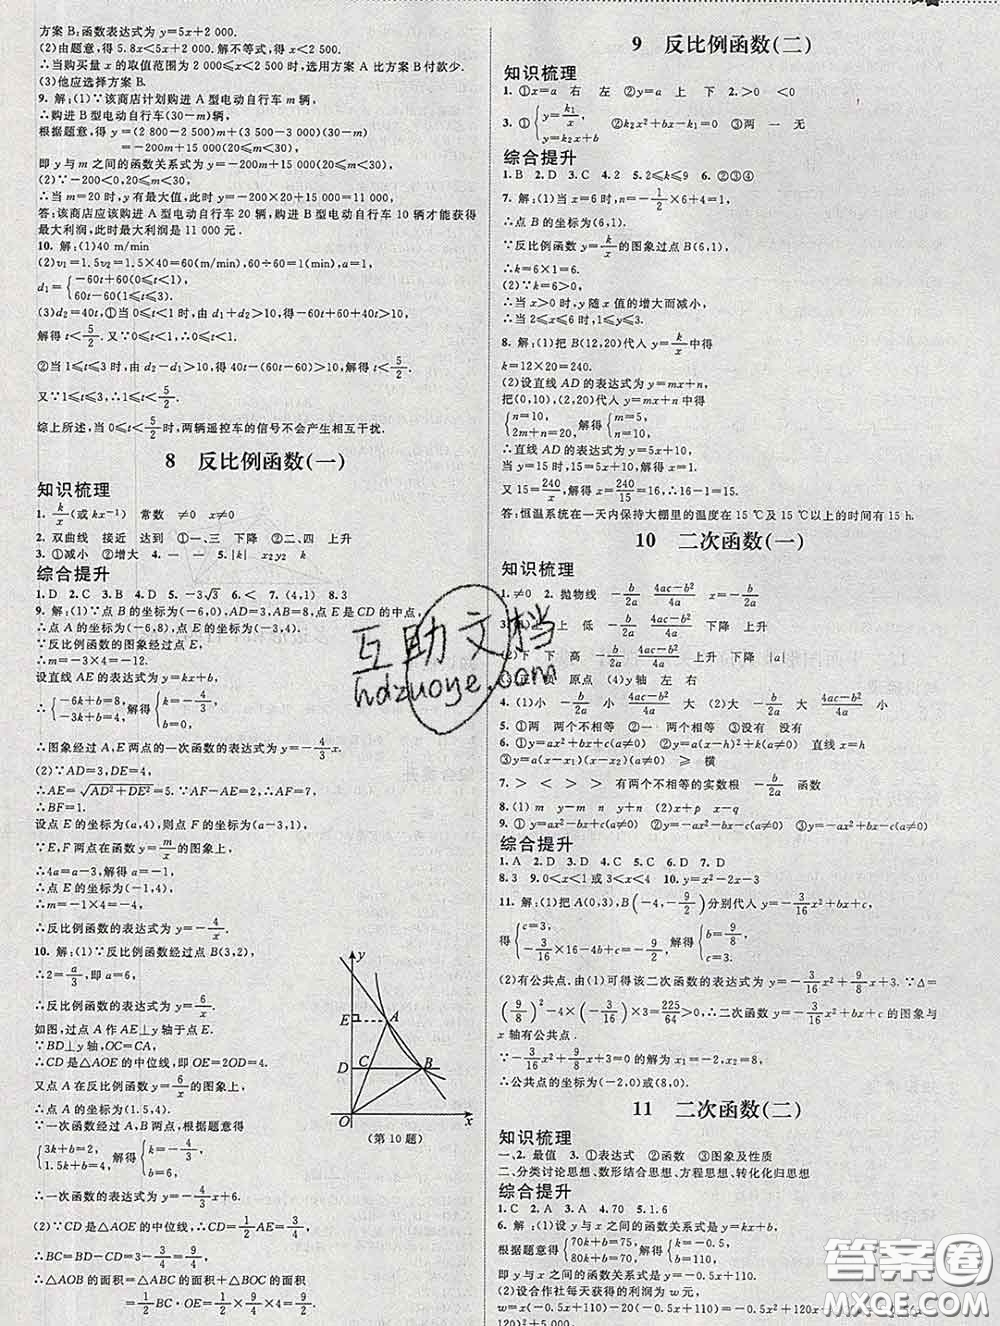 方案 B:函数表达式为 y=5x+2 000.
(2)由题意,得 5.8x<5x+2 000. 解不等式,得 x<2 500.
∴当购买量 x 的取值范围为 2 000≤x<2 500 时,选用方案 A 比方案 B 付款少.
(3)他应选择方案 B.
9. 解:(1)∵该商店计划购进 A 型电动自行车 m 辆,
∴购进 B 型电动自行车(30-m)辆,
根据题意,得 y=(2 800-2 500)m+(3 500-3 000)(30-m)
=-200m+15 000(20≤m<30),
即 y 与 m 之间的函数关系式为 y=-200m+15 000(20≤m<30).
(2)∵-200<0,20≤m<30,
∴当 m=20 时,y 有最大值,此时 y=-200×20+15 000=11 000.
答:该商店应该购进 A 型电动自行车 20 辆,购进 B 型电动自行车 10 辆才能获得
最大利润,此时最大利润是 11 000 元.
10. 解:(1)40 m/min
(2)v₁=1.5v₂=1.5×40=60(m/min),60÷60=1(min),a=1,
d₁={-60t+60(0≤t<1),
60t-60(1≤t≤3).
(3)d₂=40t,①当 0≤t<1 时,由 d₁+d₂>10,得 -60t+60+40t>10,
解得 t<5/2. 又∵0≤t<1,∴0≤t<1.
②当 1≤t≤3 时,由 d₂-d₁>10,得 40t-(60t-60)>10,解得 t<5/2.
又∵1≤t≤3,∴1≤t<5/2.
综上所述,当 0≤t<5/2时,两辆遥控车的信号不会产生相互干扰.
8 反比例函数(一)
知识梳理
1. k/x(或 kx⁻¹) 常数 ≠0 ≠0
2. 双曲线 接近 达到 ①一、三 下降 ②二、四 上升
3. ①减小 ②增大 4. — — 5. |k| x₂y₂ k
综合提升
1. D 2. C 3. A 4. D 5. -3√3 6. < 7. (4,1) 8. 3
9. 解:(1)∵点 B 的坐标为(-6,0),AD=3,AB=8,点 E 是 CD 的中点,
∴点 A 的坐标为(-6,8),点 E 的坐标为(-3,4).
∵反比例函数的图象经过点 E,
∴m=-3×4=-12.
设直线 AE 的表达式为 y=kx+b,
∴{-6k+b=8, -3k+b=4, 解得{k=-4/3, b=0,
∴图象经过 A,E 两点的一次函数的表达式为 y=-4/3x.
(2)∵AD=3,DE=4,
∴AE=√(AD²+DE²)=5. ∵AF-AE=2,∴AF=7,
∴BF=1.
设点 E 的坐标为(a,4),则点 F 的坐标为(a-3,1),
∵E,F 两点在函数 y=m/x 的图象上,
∴4a=a-3,解得 a=-1,
∴点 E 的坐标为(-1,4),
∴m=-1×4=-4,
∴反比例函数的表达式为 y=-4/x.
10. 解:(1)∵反比例函数经过点 B(3,2),
∴2=a/3,即 a=6,
∴反比例函数的表达式为 y=6/x.
如图,过点 A 作 AE⊥y 轴于点 E.
∵BD⊥y 轴,OC=CA,
∴CD 是△AOE 的中位线,即 OE=2OD=4.
又点 A 在反比例函数 y=6/x 的图象上,
∴点 A 的坐标为(1.5,4).
∵一次函数经过 A,B 两点,根据题意得
{3k+b=2, 1.5k+b=4, 解得{k=-4/3, b=6,
∴一次函数的表达式为 y=-4/3x+6.
(2)∵CD 是△AOE 的中位线,∴CD=1/2AE=3/4,∴BC=BD-CD=3-3/4=9/4,
∴△AOB 的面积=△ABC 的面积+△OBC 的面积
=1/2BC·OE=1/2×9/4×4=9/2.
y
E
A
D
C
B
O
x
(第 10 题)
9 反比例函数(二)
知识梳理
1. ①x=a 右 左 ②y=a 上 下 2. >0 <0
3. ①{y=k₁/x, y=k₂x+b ②k₂x²+bx-k₁=0 ③两 一 无
综合提升
1. B 2. D 3. C 4. 2 5. 2≤k≤9 6. ②③④
7. 解:(1)当 x=6 时,n=-1/2×6+4=1,
∴点 B 的坐标为(6,1).
∵反比例函数 y=k/x 的图象过点 B(6,1),
∴k=6×1=6.
(2)∵k=6>0,
∴当 x>0 时,y 随 x 值的增大而减小,
∴当 2≤x≤6 时,1≤y≤3.
8. 解:(1)把 B(12,20)代入 y=k/x 中得
k=12×20=240.
(2)设直线 AD 的表达式为 y=mx+n,
把(0,10),(2,20)代入 y=mx+n 中得
{n=10, 2m+n=20, 解得{m=5, n=10,
∴直线 AD 的表达式为 y=5x+10,
当 y=15 时,15=5x+10,解得 x=1.
又 15=240/x,解得 x=240/15=16,∴16-1=15.
答:恒温系统在一天内保持大棚里的温度在 15 ℃及 15 ℃以上的时间有 15 h.
10 二次函数(一)
知识梳理
1. ≠0 2. 抛物线 -b/2a (4ac-b²)/4a x=-b/2a -b/2a (4ac-b²)/4a
上 低 -b/2a (4ac-b²)/4a 下降 上升
(2)下 下 高 -b/2a (4ac-b²)/4a 上升 下降 |a|
原点 (4)y 轴 左 右
4. (1)小 -b/2a 小 (4ac-b²)/4a 大 (2)大 -b/2a 大 (4ac-b²)/4a 小
5. ①两 两个不相等 ②一 两个相等 ③没有 没有
6. ①y=ax²+bx+c(a≠0) ②y=a(x-h)²+k(a≠0) 直线 x=h
③y=a(x-x₁)(x-x₂)(a≠0) ≥ 横
7. > < > > 有两个不相等的实数根 -b/2a 函数
8. (1)m y-m n y+n (2)x+p x-q
9. ①y=ax²-bx+c(a≠0) ②y=-ax²-bx-c(a≠0) ③y=-ax²+bx-c(a≠0)
综合提升
1. A 2. D 3. D 4. C 5. C 6. D 7. D
8. 3 9. 0<x<1 或 3<x<4 10. y=x²-2x-3
11. 解:(1)把 A(0,3),B(-4,-9/2)分别代入 y=-3/16x²+bx+c,
得{c=3, -3/16×16-4b+c=-9/2, 解得{b=9/8, c=3.
(2)有公共点.由(1)可得该二次函数的表达式为 y=-3/16x²+9/8x+3. ∵Δ=
(9/8)²-4×(-3/16)×3=225/64>0,∴二次函数 y=-3/16x²+bx+c 的图象与
x 轴有公共点.
∵-3/16x²+9/8x+3=0 的解为 x₁=-2,x₂=8,
∴公共点的坐标为(-2,0)或(8,0).
11 二次函数(二)
知识梳理
一、2. 最值 3. ①表达式 ②函数 ③图象及性质
二、分类讨论思想、数形结合思想、方程思想、转化化归思想
综合提升
1. C 2. A 3. A 4. 70 5. 1.6
6. 解:(1)设 y 与 x 之间的函数关系式是 y=kx+b,
根据题意得{70k+b=75, 80k+b=70, 解得{k=-0.5, b=110,
即 y 与 x 之间的函数关系式是 y=-0.5x+110.
(2)设合作社每天获得的利润为 w 元,
w=x(-0.5x+110)-20(-0.5x+110)=-0.5x²+120x
120)²+5 000.
互助文档
hdzuoye.com
答案圈
MXQE.COM